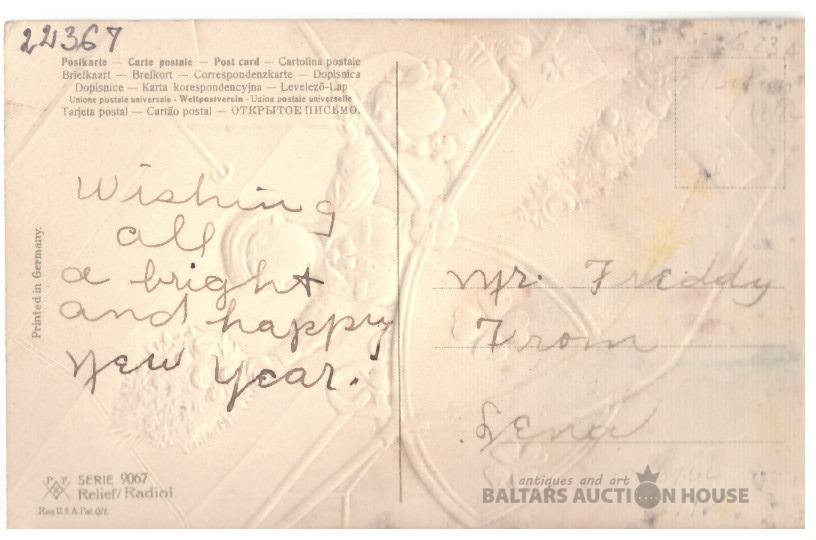 22367
Postkarte — Carte postale — Post card — Cartolina postale
Briefkaart — Brefkort — Correspondenzkarte — Dopisnica
Dopisnice — Karta korespondencyjna — Levelező-Lap
Unione postale universale - Weltpostverein - Union postale universelle
Tarjeta postal — Cartão postal — ОТКРЫТОЕ ПИСЬМО.
Wishing
all
a bright
and happy
New Year.
Printed in Germany.
Mr. Freddy
From
Lena
P P SERIE 9067
Relief/Radiol.
Reg. U.S.A. Pat. Off.
antiques and art
BALTARS AUCTION HOUSE